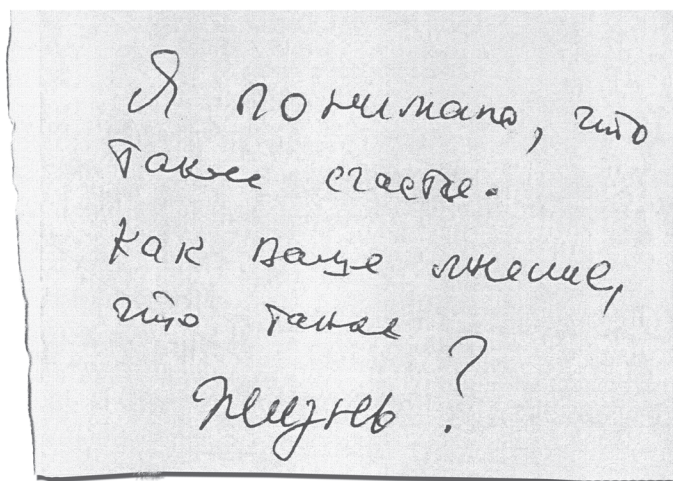 Я понимаю, что
такое счастье.
Как ваше мнение,
что такое
жизнь?